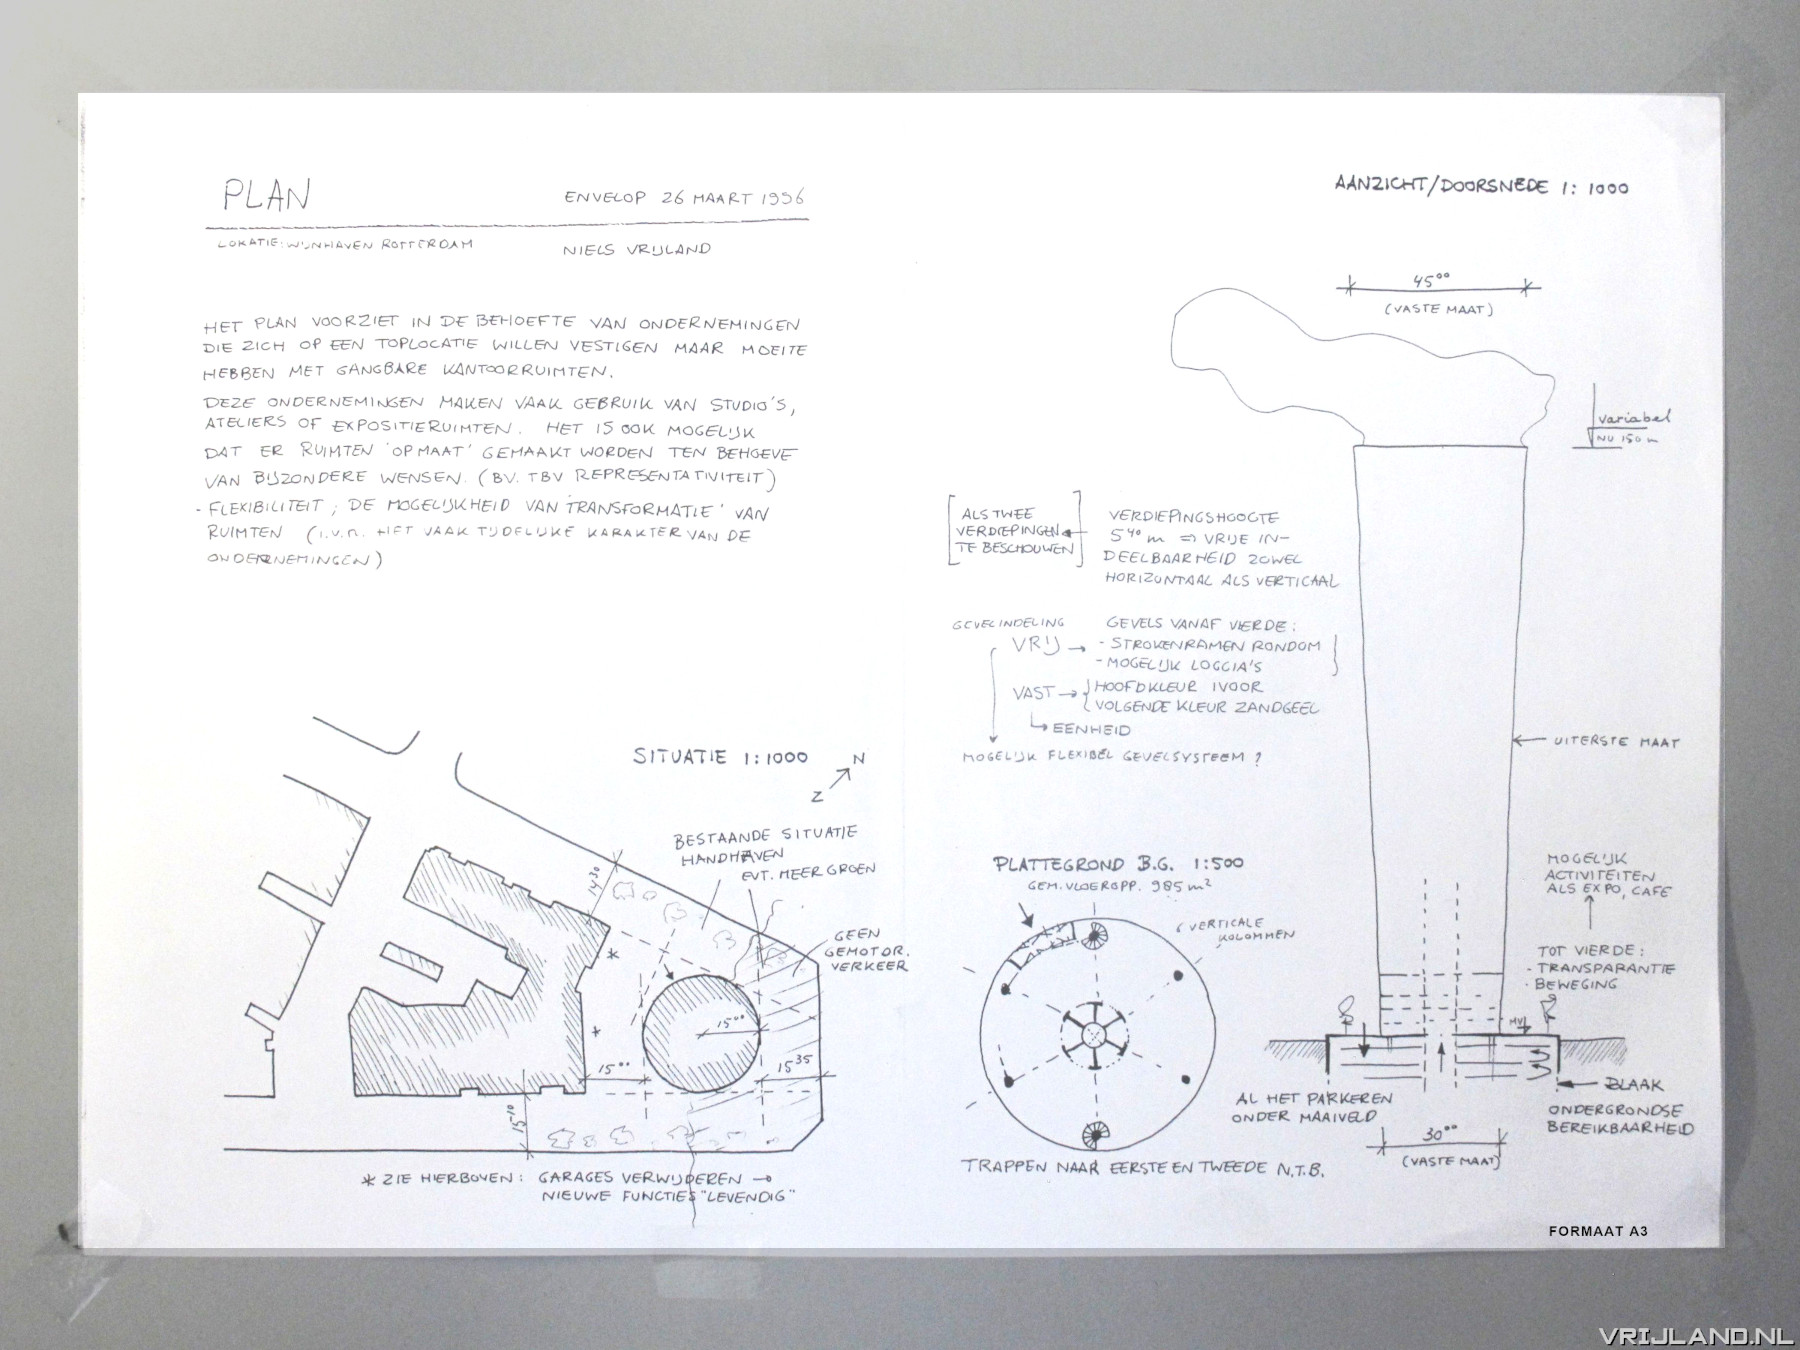 PLAN
ENVELOP 26 MAART 1996
LOKATIE: WIJNHAVEN ROTTERDAM
NIELS VRIJLAND
HET PLAN VOORZIET IN DE BEHOEFTE VAN ONDERNEMINGEN
DIE ZICH OP EEN TOPLOCATIE WILLEN VESTIGEN MAAR MOEITE
HEBBEN MET GANGBARE KANTOORRUIMTEN.
DEZE ONDERNEMINGEN MAKEN VAAK GEBRUIK VAN STUDIO'S,
ATELIERS OF EXPOSITIERUIMTEN. HET IS OOK MOGELIJK
DAT ER RUIMTEN 'OP MAAT' GEMAAKT WORDEN TEN BEHOEVE
VAN BIJZONDERE WENSEN. (BV. TBV REPRESENTATIVITEIT)
- FLEXIBILITEIT; DE MOGELIJKHEID VAN 'TRANSFORMATIE' VAN
RUIMTEN (i.v.m. HET VAAK TIJDELIJKE KARAKTER VAN DE
ONDERNEMINGEN)
SITUATIE 1:1000
N
Z
BESTAANDE SITUATIE
HANDHAVEN
EVT. MEER GROEN
GEEN
GEMOTOR.
VERKEER
14³⁰
15⁰⁰
15⁰⁰
15³⁵
15¹⁰
* ZIE HIERBOVEN: GARAGES VERWIJDEREN →
NIEUWE FUNCTIES "LEVENDIG"
AANZICHT/DOORSNEDE 1:1000
45⁰⁰
(VASTE MAAT)
variabel
NU 150 m
[ALS TWEE
VERDIEPINGEN
TE BESCHOUWEN]
VERDIEPINGSHOOGTE
5⁴⁰ m ⇒ VRIJE IN-
DEELBAARHEID ZOWEL
HORIZONTAAL ALS VERTICAAL
GEVELINDELING
VRIJ →
GEVELS VANAF VIERDE:
- STROKENRAMEN RONDOM
- MOGELIJK LOGGIA'S
VAST → { HOOFDKLEUR IVOOR
VOLGENDE KLEUR ZANDGEEL
EENHEID
MOGELIJK FLEXIBEL GEVELSYSTEEM?
UITERSTE MAAT
PLATTEGROND B.G. 1:500
GEM. VLOEROPP. 985 m²
6 VERTICALE
KOLOMMEN
TRAPPEN NAAR EERSTE EN TWEEDE N.T.B.
MOGELIJK
ACTIVITEITEN
ALS EXPO, CAFE
TOT VIERDE:
- TRANSPARANTIE
- BEWEGING
MV
AL HET PARKEREN
ONDER MAAIVELD
BLAAK
ONDERGRONDSE
BEREIKBAARHEID
30⁰⁰
(VASTE MAAT)
FORMAAT A3
VRIJLAND.NL